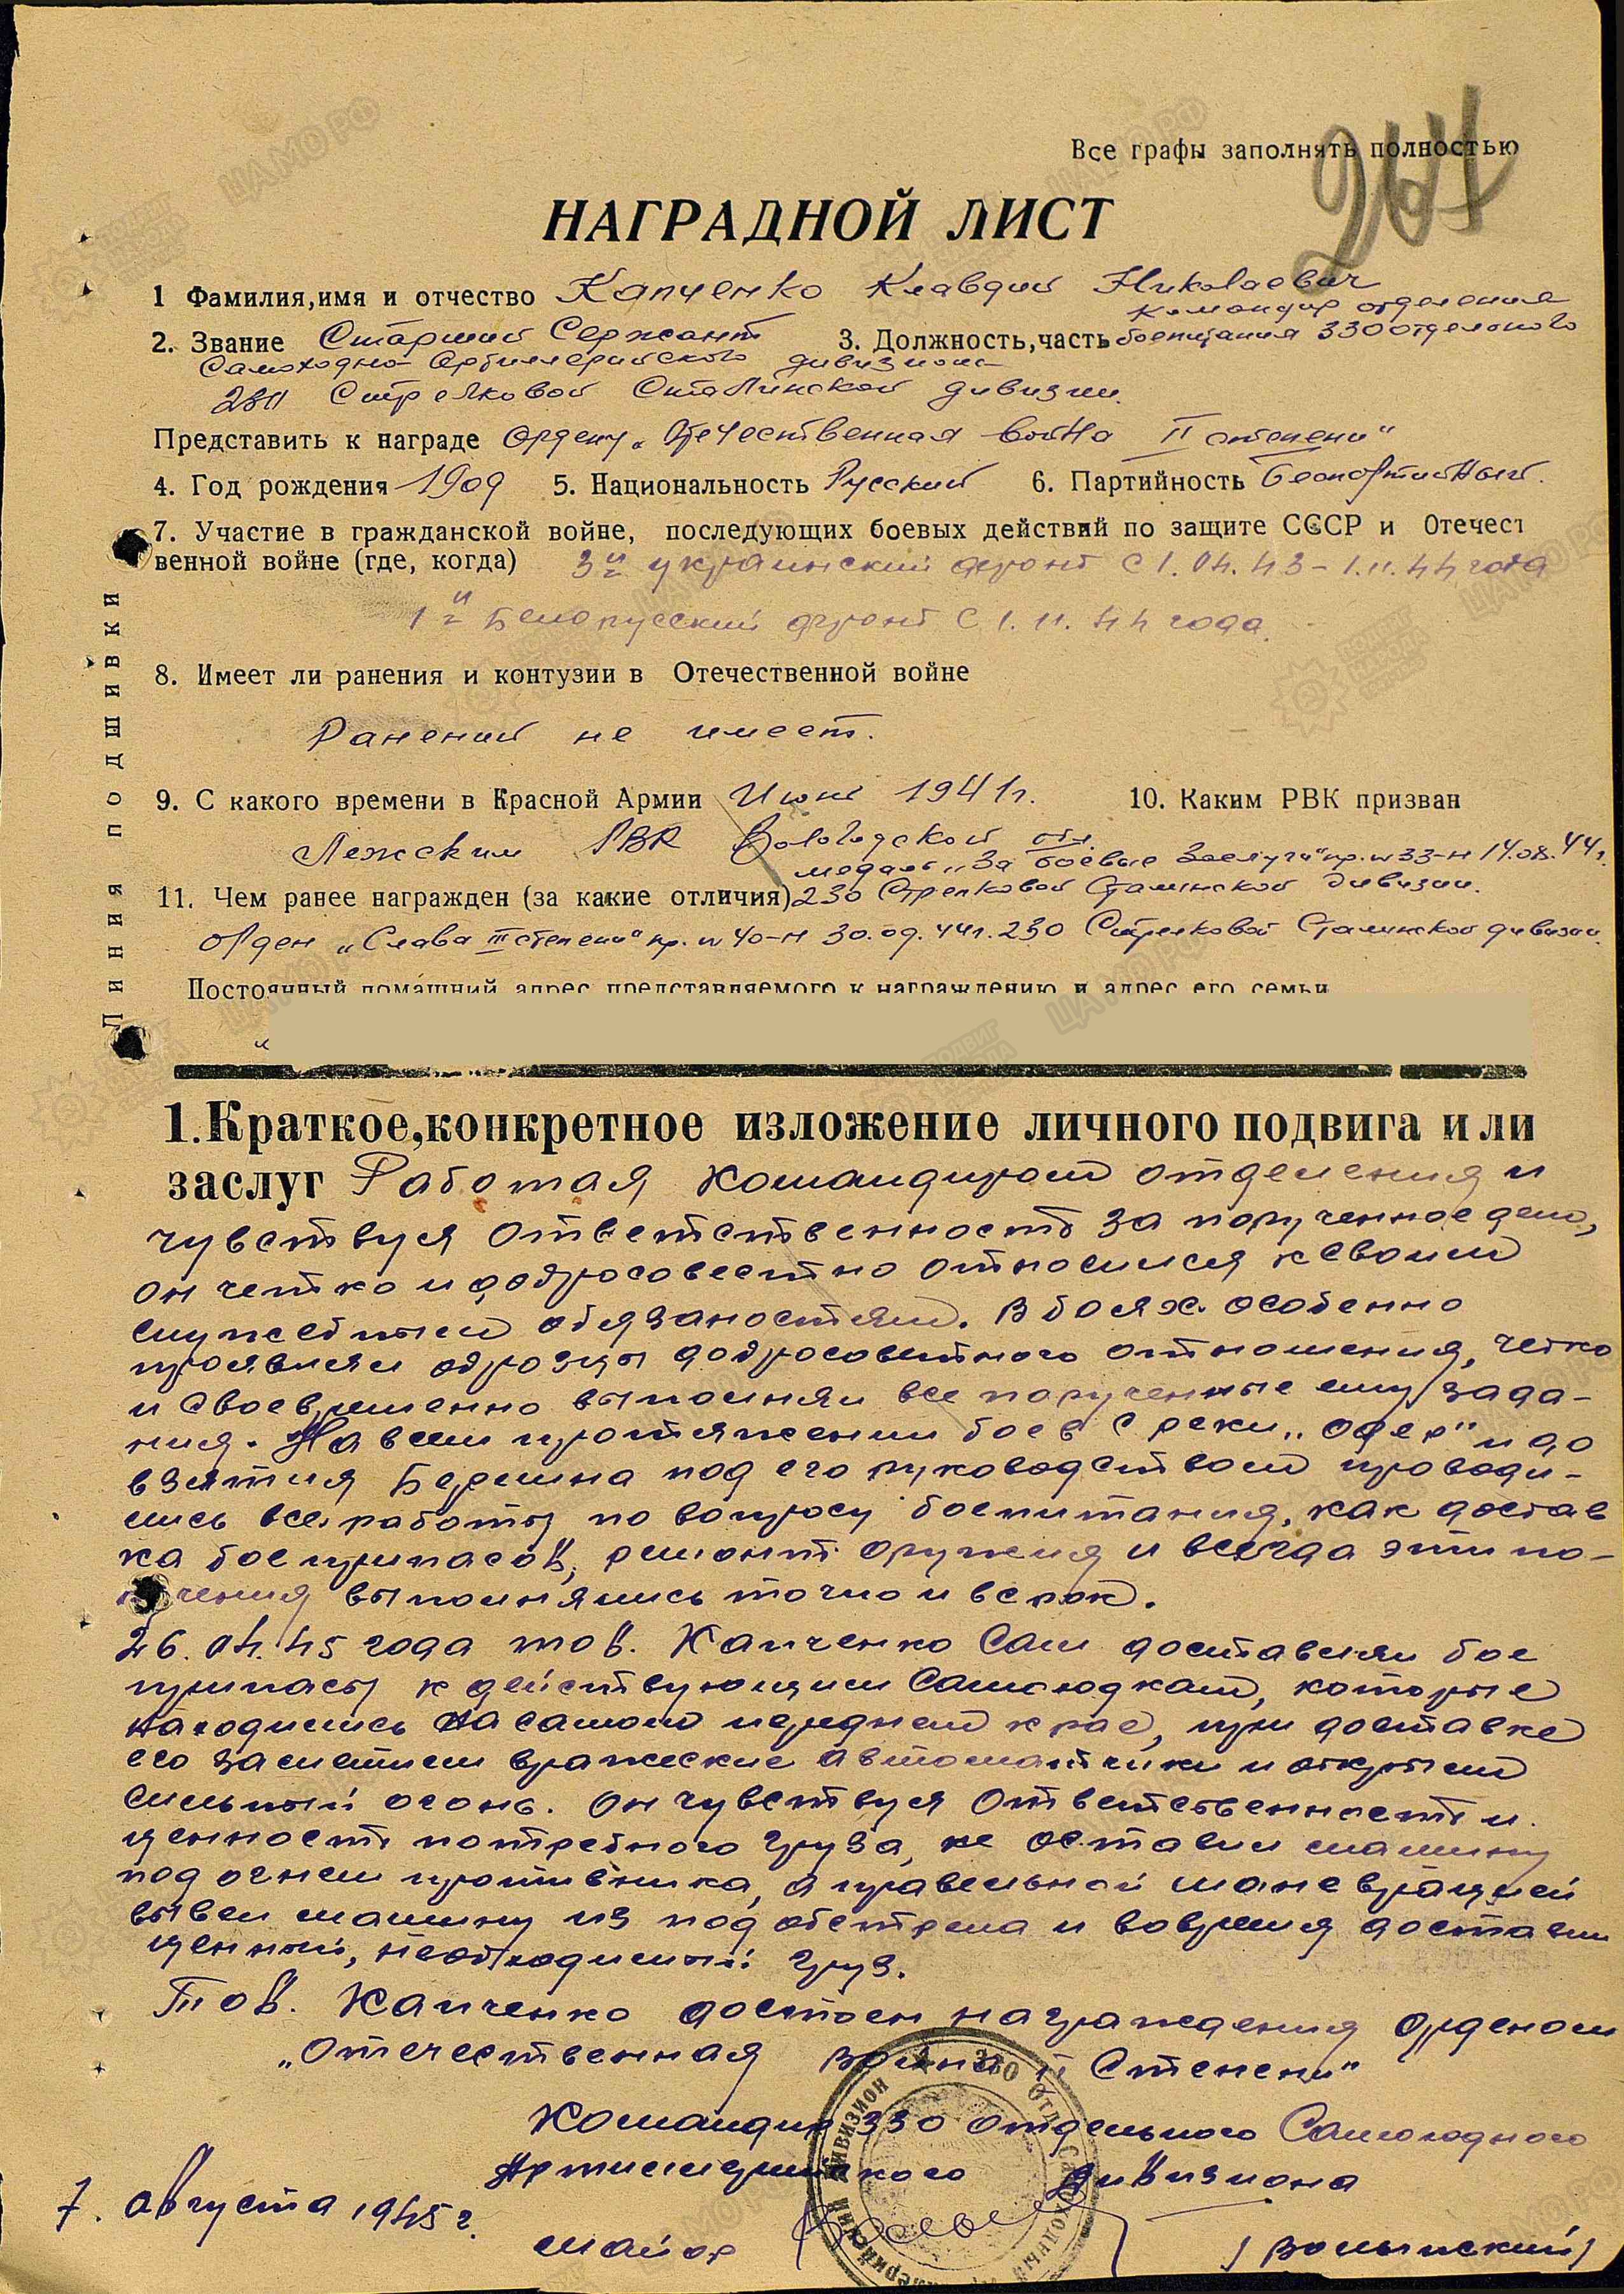 Все графы заполнять полностью
264
НАГРАДНОЙ ЛИСТ
1 Фамилия,имя и отчество Капченко Клавдий Николаевич
2. Звание Старший Сержант 3. Должность,часть командир отделения
боепитания 330 отдельного
Самоходно-Артиллерийского дивизиона
230 Стрелковой Сталинской дивизии.
Представить к награде Ордену „Отечественная война II степени"
4. Год рождения 1909 5. Национальность Русский 6. Партийность Беспартийный.
7. Участие в гражданской войне, последующих боевых действий по защите СССР и Отечест
венной войне (где, когда) 3й украинский фронт с 1.04.43 - 1.11.44 года
1й Белорусский фронт с 1.11.44 года.
8. Имеет ли ранения и контузии в Отечественной войне
Ранений не имеет.
9. С какого времени в Красной Армии Июнь 1941г. 10. Каким РВК призван
Лежским РВК Вологодской обл.
медаль „За боевые заслуги" пр. № 33-н 14.08.44г.
11. Чем ранее награжден (за какие отличия) 230 Стрелковой Сталинской дивизии.
орден „Слава III степени" пр. № 40-н 30.09.44г. 230 Стрелковой Сталинской дивизии.
Постоянный домашний адрес представляемого к награждению и адрес его семьи
Линия подшивки
1.Краткое,конкретное изложение личного подвига или
заслуг Работая командиром отделения и
чувствуя ответственность за порученное дело,
он четко и добросовестно относился к своим
служебным обязаностям. В боях особенно
проявлял образцы добросовестного отношения, четко
и своевременно выполнял все порученные ему зада-
ния. На всем протяжении боев с реки „Одер" и до
взятия Берлина под его руководством проводи-
лись все работы по вопросу боепитания, как достав
ка боеприпасов, ремонт оружия и всегда эти по-
ручения выполнялись точно и в срок.
26.04.45 года тов. Капченко сам доставлял бое
припасы к действующим самоходкам, которые
находились на самом переднем крае, при доставке
его заметили вражеские автоматчики и открыли
сильный огонь. Он чувствуя ответственность и
ценность потребного груза, не оставил машину
под огнем противника, а правельной маневрацией
вывел машину из под обстрела и вовремя доставил
ценный, необходимый груз.
Тов. Капченко достоен награждения орденом
„Отечественная война II степени"
Командир 330 отдельного Самоходного
Артиллерийского дивизиона
7. августа 1945 г.
майор (Волынский)
330 Отд. Самоходный Артиллерийский Дивизион
ЦАМО РФ
ПОДВИГ НАРОДА